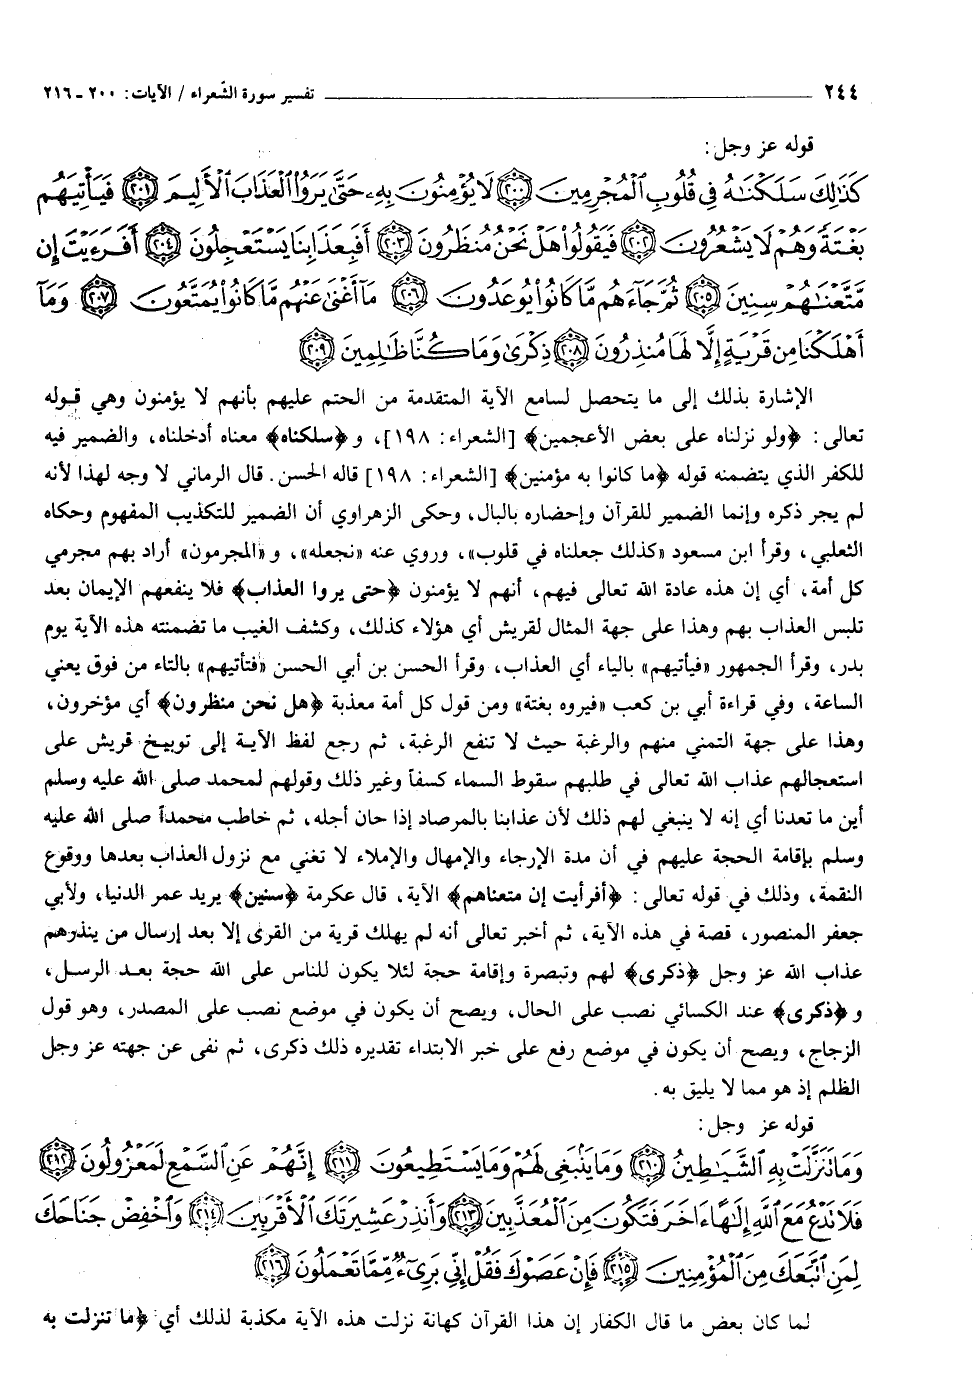 ٢٤٤ ــــــــــــــــــــ تفسير سورة الشّعراء / الآيات: ٢٠٠ ـ ٢١٦
قوله عز وجل:
كَذَٰلِكَ سَلَكْنَٰهُ فِى قُلُوبِ ٱلْمُجْرِمِينَ ﴿٢٠٠﴾ لَا يُؤْمِنُونَ بِهِۦ حَتَّىٰ يَرَوُا۟ ٱلْعَذَابَ ٱلْأَلِيمَ ﴿٢٠١﴾ فَيَأْتِيَهُم
بَغْتَةً وَهُمْ لَا يَشْعُرُونَ ﴿٢٠٢﴾ فَيَقُولُوا۟ هَلْ نَحْنُ مُنظَرُونَ ﴿٢٠٣﴾ أَفَبِعَذَابِنَا يَسْتَعْجِلُونَ ﴿٢٠٤﴾ أَفَرَءَيْتَ إِن
مَّتَّعْنَٰهُمْ سِنِينَ ﴿٢٠٥﴾ ثُمَّ جَآءَهُم مَّا كَانُوا۟ يُوعَدُونَ ﴿٢٠٦﴾ مَآ أَغْنَىٰ عَنْهُم مَّا كَانُوا۟ يُمَتَّعُونَ ﴿٢٠٧﴾ وَمَآ
أَهْلَكْنَا مِن قَرْيَةٍ إِلَّا لَهَا مُنذِرُونَ ﴿٢٠٨﴾ ذِكْرَىٰ وَمَا كُنَّا ظَٰلِمِينَ ﴿٢٠٩﴾
الإشارة بذلك إلى ما يتحصل لسامع الآية المتقدمة من الحتم عليهم بأنهم لا يؤمنون وهي قوله
تعالى: ﴿ولو نزلناه على بعض الأعجمين﴾ [الشعراء: ١٩٨]، و﴿سلكناه﴾ معناه أدخلناه، والضمير فيه
للكفر الذي يتضمنه قوله ﴿ما كانوا به مؤمنين﴾ [الشعراء: ١٩٨] قاله الحسن. قال الرماني لا وجه لهذا لأنه
لم يجر ذكره وإنما الضمير للقرآن وإحضاره بالبال، وحكى الزهراوي أن الضمير للتكذيب المفهوم وحكاه
الثعلبي، وقرأ ابن مسعود «كذلك جعلناه في قلوب»، وروي عنه «نجعله»، و«المجرمون» أراد بهم مجرمي
كل أمة، أي إن هذه عادة الله تعالى فيهم، أنهم لا يؤمنون ﴿حتى يروا العذاب﴾ فلا ينفعهم الإيمان بعد
تلبس العذاب بهم وهذا على جهة المثال لقريش أي هؤلاء كذلك، وكشف الغيب ما تضمنته هذه الآية يوم
بدر، وقرأ الجمهور «فيأتيهم» بالياء أي العذاب، وقرأ الحسن بن أبي الحسن «فتأتيهم» بالتاء من فوق يعني
الساعة، وفي قراءة أبي بن كعب «فيروه بغتة» ومن قول كل أمة معذبة ﴿هل نحن منظرون﴾ أي مؤخرون،
وهذا على جهة التمني منهم والرغبة حيث لا تنفع الرغبة، ثم رجع لفظ الآية إلى توبيخ قريش على
استعجالهم عذاب الله تعالى في طلبهم سقوط السماء كسفاً وغير ذلك وقولهم لمحمد صلى الله عليه وسلم
أين ما تعدنا أي إنه لا ينبغي لهم ذلك لأن عذابنا بالمرصاد إذا حان أجله، ثم خاطب محمداً صلى الله عليه
وسلم بإقامة الحجة عليهم في أن مدة الإرجاء والإمهال والإملاء لا تغني مع نزول العذاب بعدها ووقوع
النقمة، وذلك في قوله تعالى: ﴿أفرأيت إن متعناهم﴾ الآية، قال عكرمة ﴿سنين﴾ يريد عمر الدنيا، ولأبي
جعفر المنصور، قصة في هذه الآية، ثم أخبر تعالى أنه لم يهلك قرية من القرى إلا بعد إرسال من ينذرهم
عذاب الله عز وجل ﴿ذكرى﴾ لهم وتبصرة وإقامة حجة لئلا يكون للناس على الله حجة بعد الرسل،
و﴿ذكرى﴾ عند الكسائي نصب على الحال، ويصح أن يكون في موضع نصب على المصدر، وهو قول
الزجاج، ويصح أن يكون في موضع رفع على خبر الابتداء تقديره ذلك ذكرى، ثم نفى عن جهته عز وجل
الظلم إذ هو مما لا يليق به.
قوله عز وجل:
وَمَا نَنَزَّلَتْ بِهِ ٱلشَّيَٰطِينُ ﴿٢١٠﴾ وَمَا يَنۢبَغِى لَهُمْ وَمَا يَسْتَطِيعُونَ ﴿٢١١﴾ إِنَّهُمْ عَنِ ٱلسَّمْعِ لَمَعْزُولُونَ ﴿٢١٢﴾
فَلَا تَدْعُ مَعَ ٱللَّهِ إِلَٰهًا ءَاخَرَ فَتَكُونَ مِنَ ٱلْمُعَذَّبِينَ ﴿٢١٣﴾ وَأَنذِرْ عَشِيرَتَكَ ٱلْأَقْرَبِينَ ﴿٢١٤﴾ وَٱخْفِضْ جَنَاحَكَ
لِمَنِ ٱتَّبَعَكَ مِنَ ٱلْمُؤْمِنِينَ ﴿٢١٥﴾ فَإِنْ عَصَوْكَ فَقُلْ إِنِّى بَرِىٓءٌ مِّمَّا تَعْمَلُونَ ﴿٢١٦﴾
لما كان بعض ما قال الكفار إن هذا القرآن كهانة نزلت هذه الآية مكذبة لذلك أي ﴿ما تنزلت به